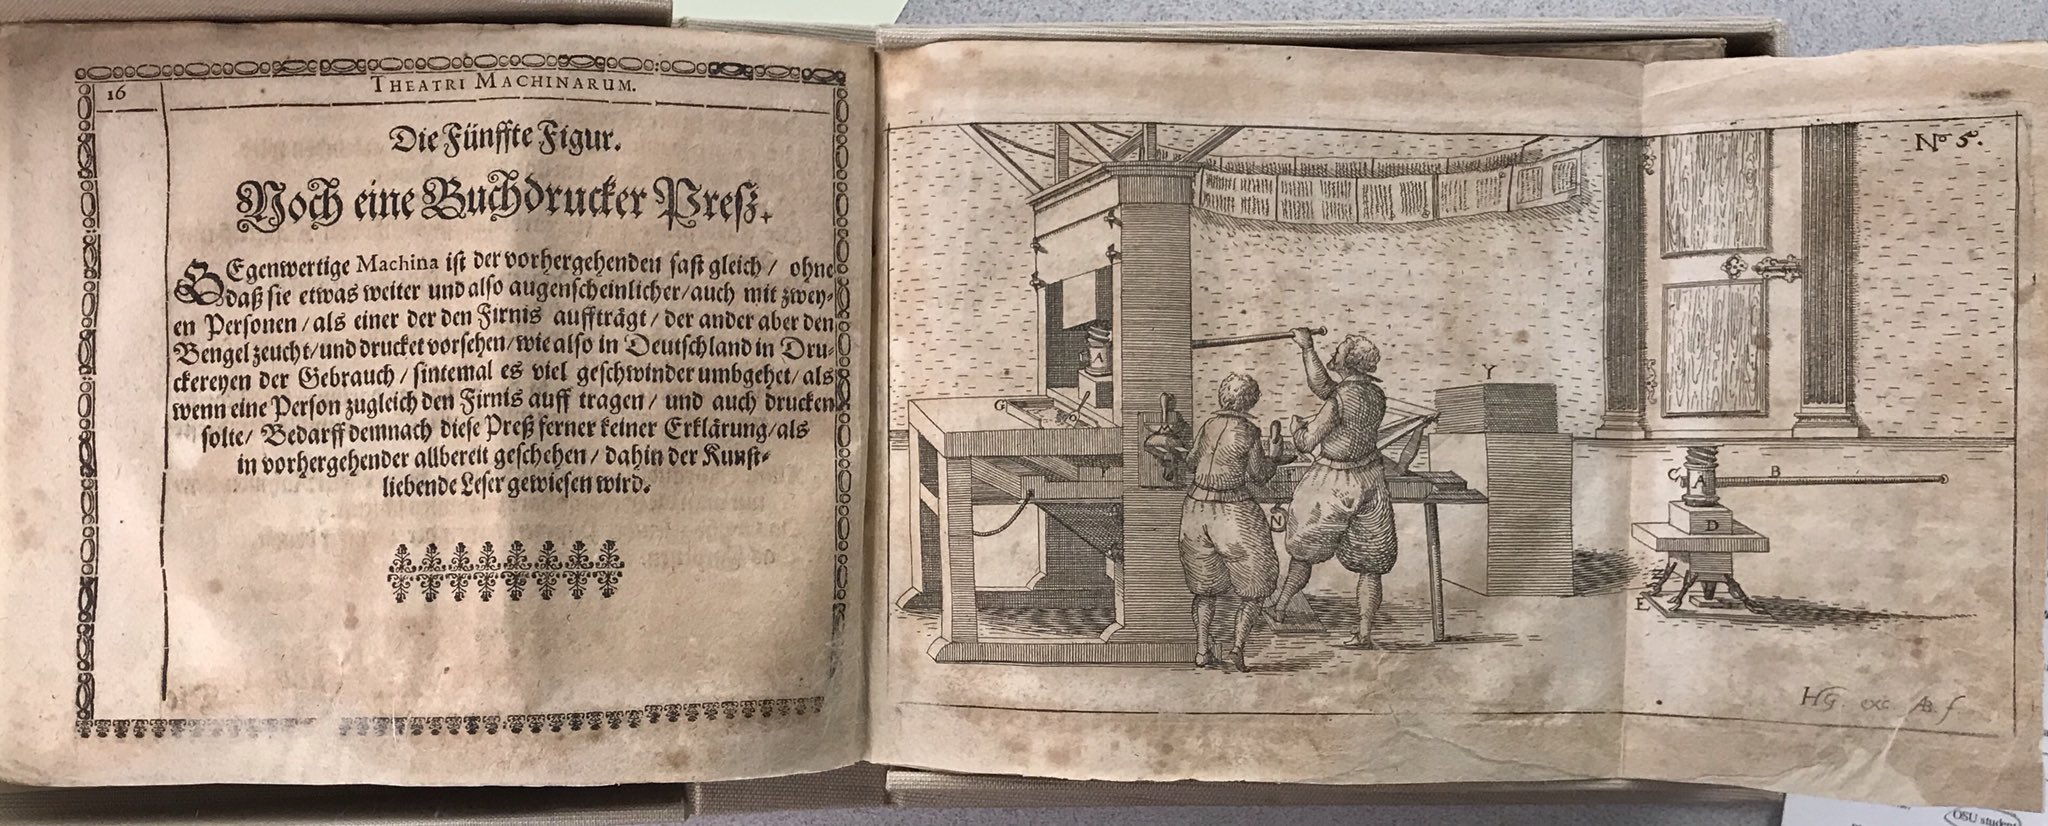 16
THEATRI MACHINARUM.
Die Fünffte Figur.
Noch eine Buchdrucker Preß.
GEgenwertige Machina ist der vorhergehenden fast gleich / ohne
daß sie etwas weiter und also augenscheinlicher / auch mit zwey-
en Personen / als einer der den Firnis aufftrågt / der ander aber den
Bengel zeucht / und drucket vorsehen / wie also in Deutschland in Dru-
ckereyen der Gebrauch / sintemal es viel geschwinder umbgehet / als
wenn eine Person zugleich den Firnis auff tragen / und auch drucken
solte / Bedarff demnach diese Preß ferner keiner Erklärung / als
in vorhergehender allbereit geschehen / dahin der Kunst-
liebende Leser gewiesen wird.
No 5.
A
G
Y
F
N
C
A
B
D
E
HG. exc. AB. f
OSU student